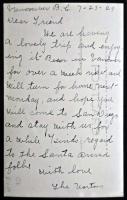 Vancouver B.C. 7-23-21
Dear Friend
We are having
a lovely trip and enjoy
ing it. Been in Vancou
for over a week
will turn for home next
monday, and hope you
will come to San Diego
and stay with us for
a while. Kind regard
to the Santa
folks
With love
The